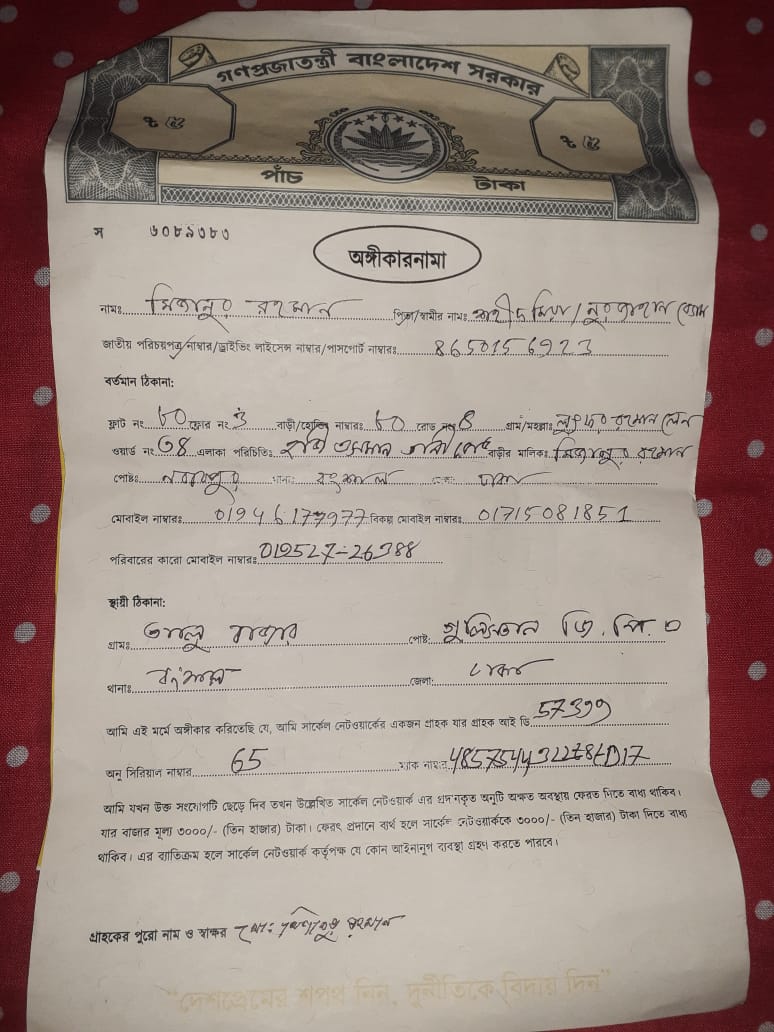 গণপ্রজাতন্ত্রী বাংলাদেশ সরকার
৳ ৫ ৳ ৫
পাঁচ টাকা
স ৬০৮৯৩৮৩
অঙ্গীকারনামা
নামঃ মিজানুর রহমান পিতা/স্বামীর নামঃ শহীদ মিয়া/নুরজাহান বেগম
জাতীয় পরিচয়পত্র নাম্বার/ড্রাইভিং লাইসেন্স নাম্বার/পাসপোর্ট নাম্বারঃ 8650156923
বর্তমান ঠিকানা:
ফ্লাট নং ৮০ ফ্লোর নং ৩ বাড়ী/হোল্ডিং নাম্বারঃ ৮০ রোড নং গ্রাম/মহল্লাঃ লুৎফর রহমান লেন
ওয়ার্ড নং ৩৪ এলাকা পরিচিতিঃ হাজী ওসমান গনী রোড বাড়ীর মালিকঃ মিজানুর রহমান
পোষ্টঃ নবাবপুর থানাঃ বংশাল জেলা: ঢাকা
মোবাইল নাম্বারঃ 01946177977 বিকল্প মোবাইল নাম্বারঃ 01715081851
পরিবারের কারো মোবাইল নাম্বারঃ 019527-26388
স্থায়ী ঠিকানা:
গ্রামঃ আলু বাজার পোষ্ট: গুলিস্তান জি. পি. ও
থানাঃ বংশাল জেলা: ঢাকা
আমি এই মর্মে অঙ্গীকার করিতেছি যে, আমি সার্কেল নেটওয়ার্কের একজন গ্রাহক যার গ্রাহক আই ডি 57399
অনু সিরিয়াল নাম্বার 65 ম্যাক নাম্বার
আমি যখন উক্ত সংযোগটি ছেড়ে দিব তখন উল্লেখিত সার্কেল নেটওয়ার্ক এর প্রদানকৃত অনুটি অক্ষত অবস্থায় ফেরত দিতে বাধ্য থাকিব।
যার বাজার মূল্য ৩০০০/- (তিন হাজার) টাকা। ফেরৎ প্রদানে ব্যর্থ হলে সার্কেল নেটওয়ার্ককে ৩০০০/- (তিন হাজার) টাকা দিতে বাধ্য
থাকিব। এর ব্যতিক্রম হলে সার্কেল নেটওয়ার্ক কর্তৃপক্ষ যে কোন আইনানুগ ব্যবস্থা গ্রহণ করতে পারবে।
গ্রাহকের পুরো নাম ও স্বাক্ষর মোঃ মিজানুর রহমান
"দেশপ্রেমের শপথ নিন, দুর্নীতিকে বিদায় দিন"